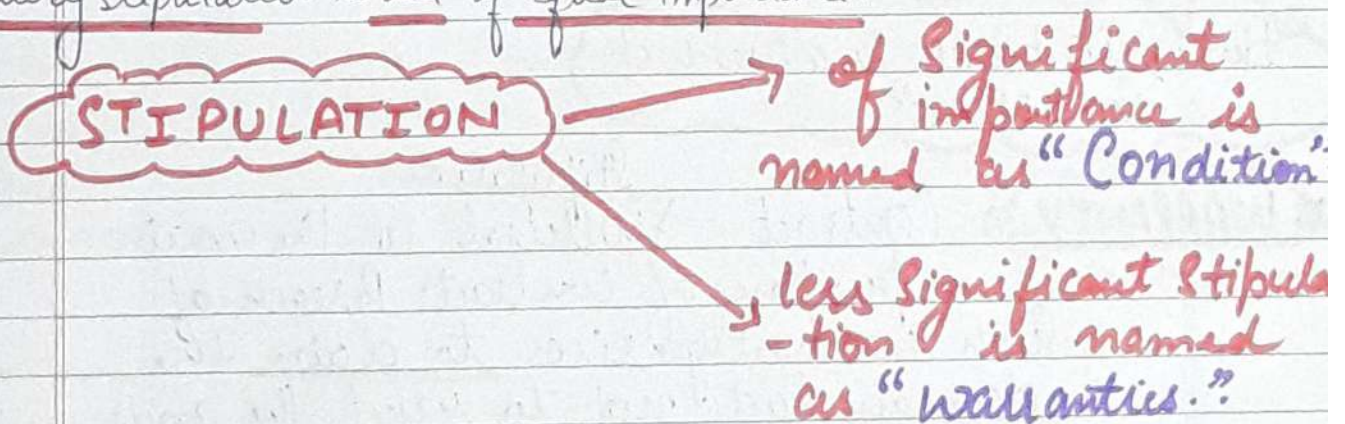 of
STIPULATION
of Significant
importance is
named as "Condition"
less Significant Stipula
-tion is named
as "Warranties."